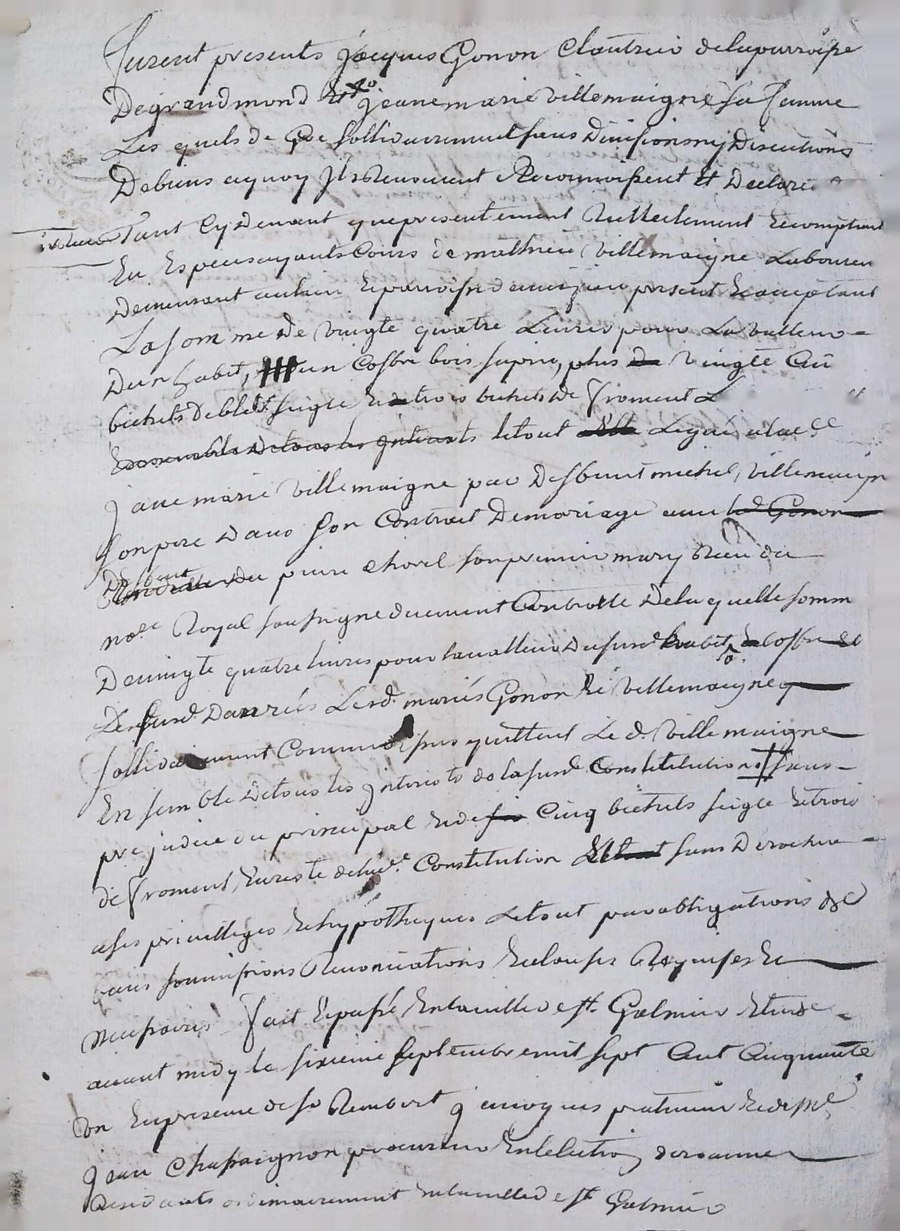 furent presents jacques Gonon Cloutrier de la parroisse
De grandmond et jeane marie Villemaigne sa femme
Les quels de gré sollidairement sans Division ny Discutions
De biens a quoy Ils Renoncent Reconnoissent et Declare
Tant Cy Devant que presentement Reellement E comptant
En Especes ayants Cours de mathieu Villemaigne Laboureu
Demeurant au lieu E parroisse d present E acceptant
La somme De Vingte quatre Livres pour La valleur
D'un habit, un Coffre bois sapin, plus Vingte Cin
bichets de bled seigle E trois bichets De froment
Ensemble De tous les interests le tout Legué a lad.
jane marie Villemaigne par Deffunt michel Villemaign
son pere Dans son Contrat De mariage avec led Gonon
Deffunt pierre chorel son premier mary Receu du
no.re Royal soussigne duement Controlle De la quelle somm
De vingte quatre livres pour la valleur Dususd. habit, coffre
Desusd. Danrées Lesd. mariés Gonon & Villemaigne
sollidairement Comme dessus quittent Le d. Villemaigne
En semble De tous les interests de la susd. Constitution sans
prejudice du principal E de Cinq bichets seigle E trois
de froment, E reste de lad. Constitution sans Deroger
a ses privilleges E hypotheques Le tout par obligations &
sous soumissions Renonciations E clauses Requises E
necessaires fait E passé En la ville de st. Galmier Etude
avant midy le sixieme septembre mil sept Cent Cinquante
un En presence de sr Rambert et de me
jean Chassaignon procureur En L'election de roanne
Residants ordinairement en la ville de st Galmier